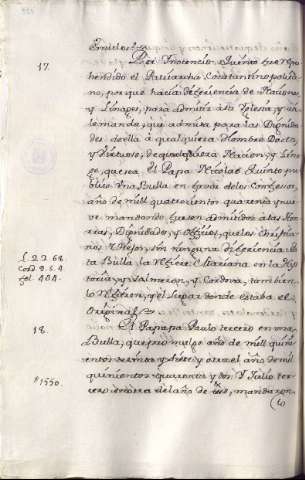 17.
Dist. Inocencio Quinto fue repre
hendido el Patriarcha Constantinopolita
no, porque hacia diferiencia de Naciones,
y Linages, para admitir a la Yglesia, y se
le manda, que admita para las Dignida
des de ella à qualquiera Hombre Docto,
y Virtuoso, de qualquiera Nacion, y Lina
ge, que sea. El Papa Nicolas Quinto pu
blico una Bulla en favor de los Conversos,
año de mil quatrocientos quarenta y nue
ve mandando fuesen admitidos a las Hon
ras, Dignidades, y Oficios, que los Christia
nos Viejos, sin ninguna diferiencia, de
la Bulla, la refiere el Mariana en la His
toria, y Salmeron, y Cordova, tambien
lo refieren, y el lugar donde estaba el
Original.
18.
El Papa Paulo tercero en una
Bulla, que promulgo año de mil quini
entos treinta y siete y otra el año de mil
quinientos quarenta y dos. Y Julio ter
cero en otra del año de mandaron
1550